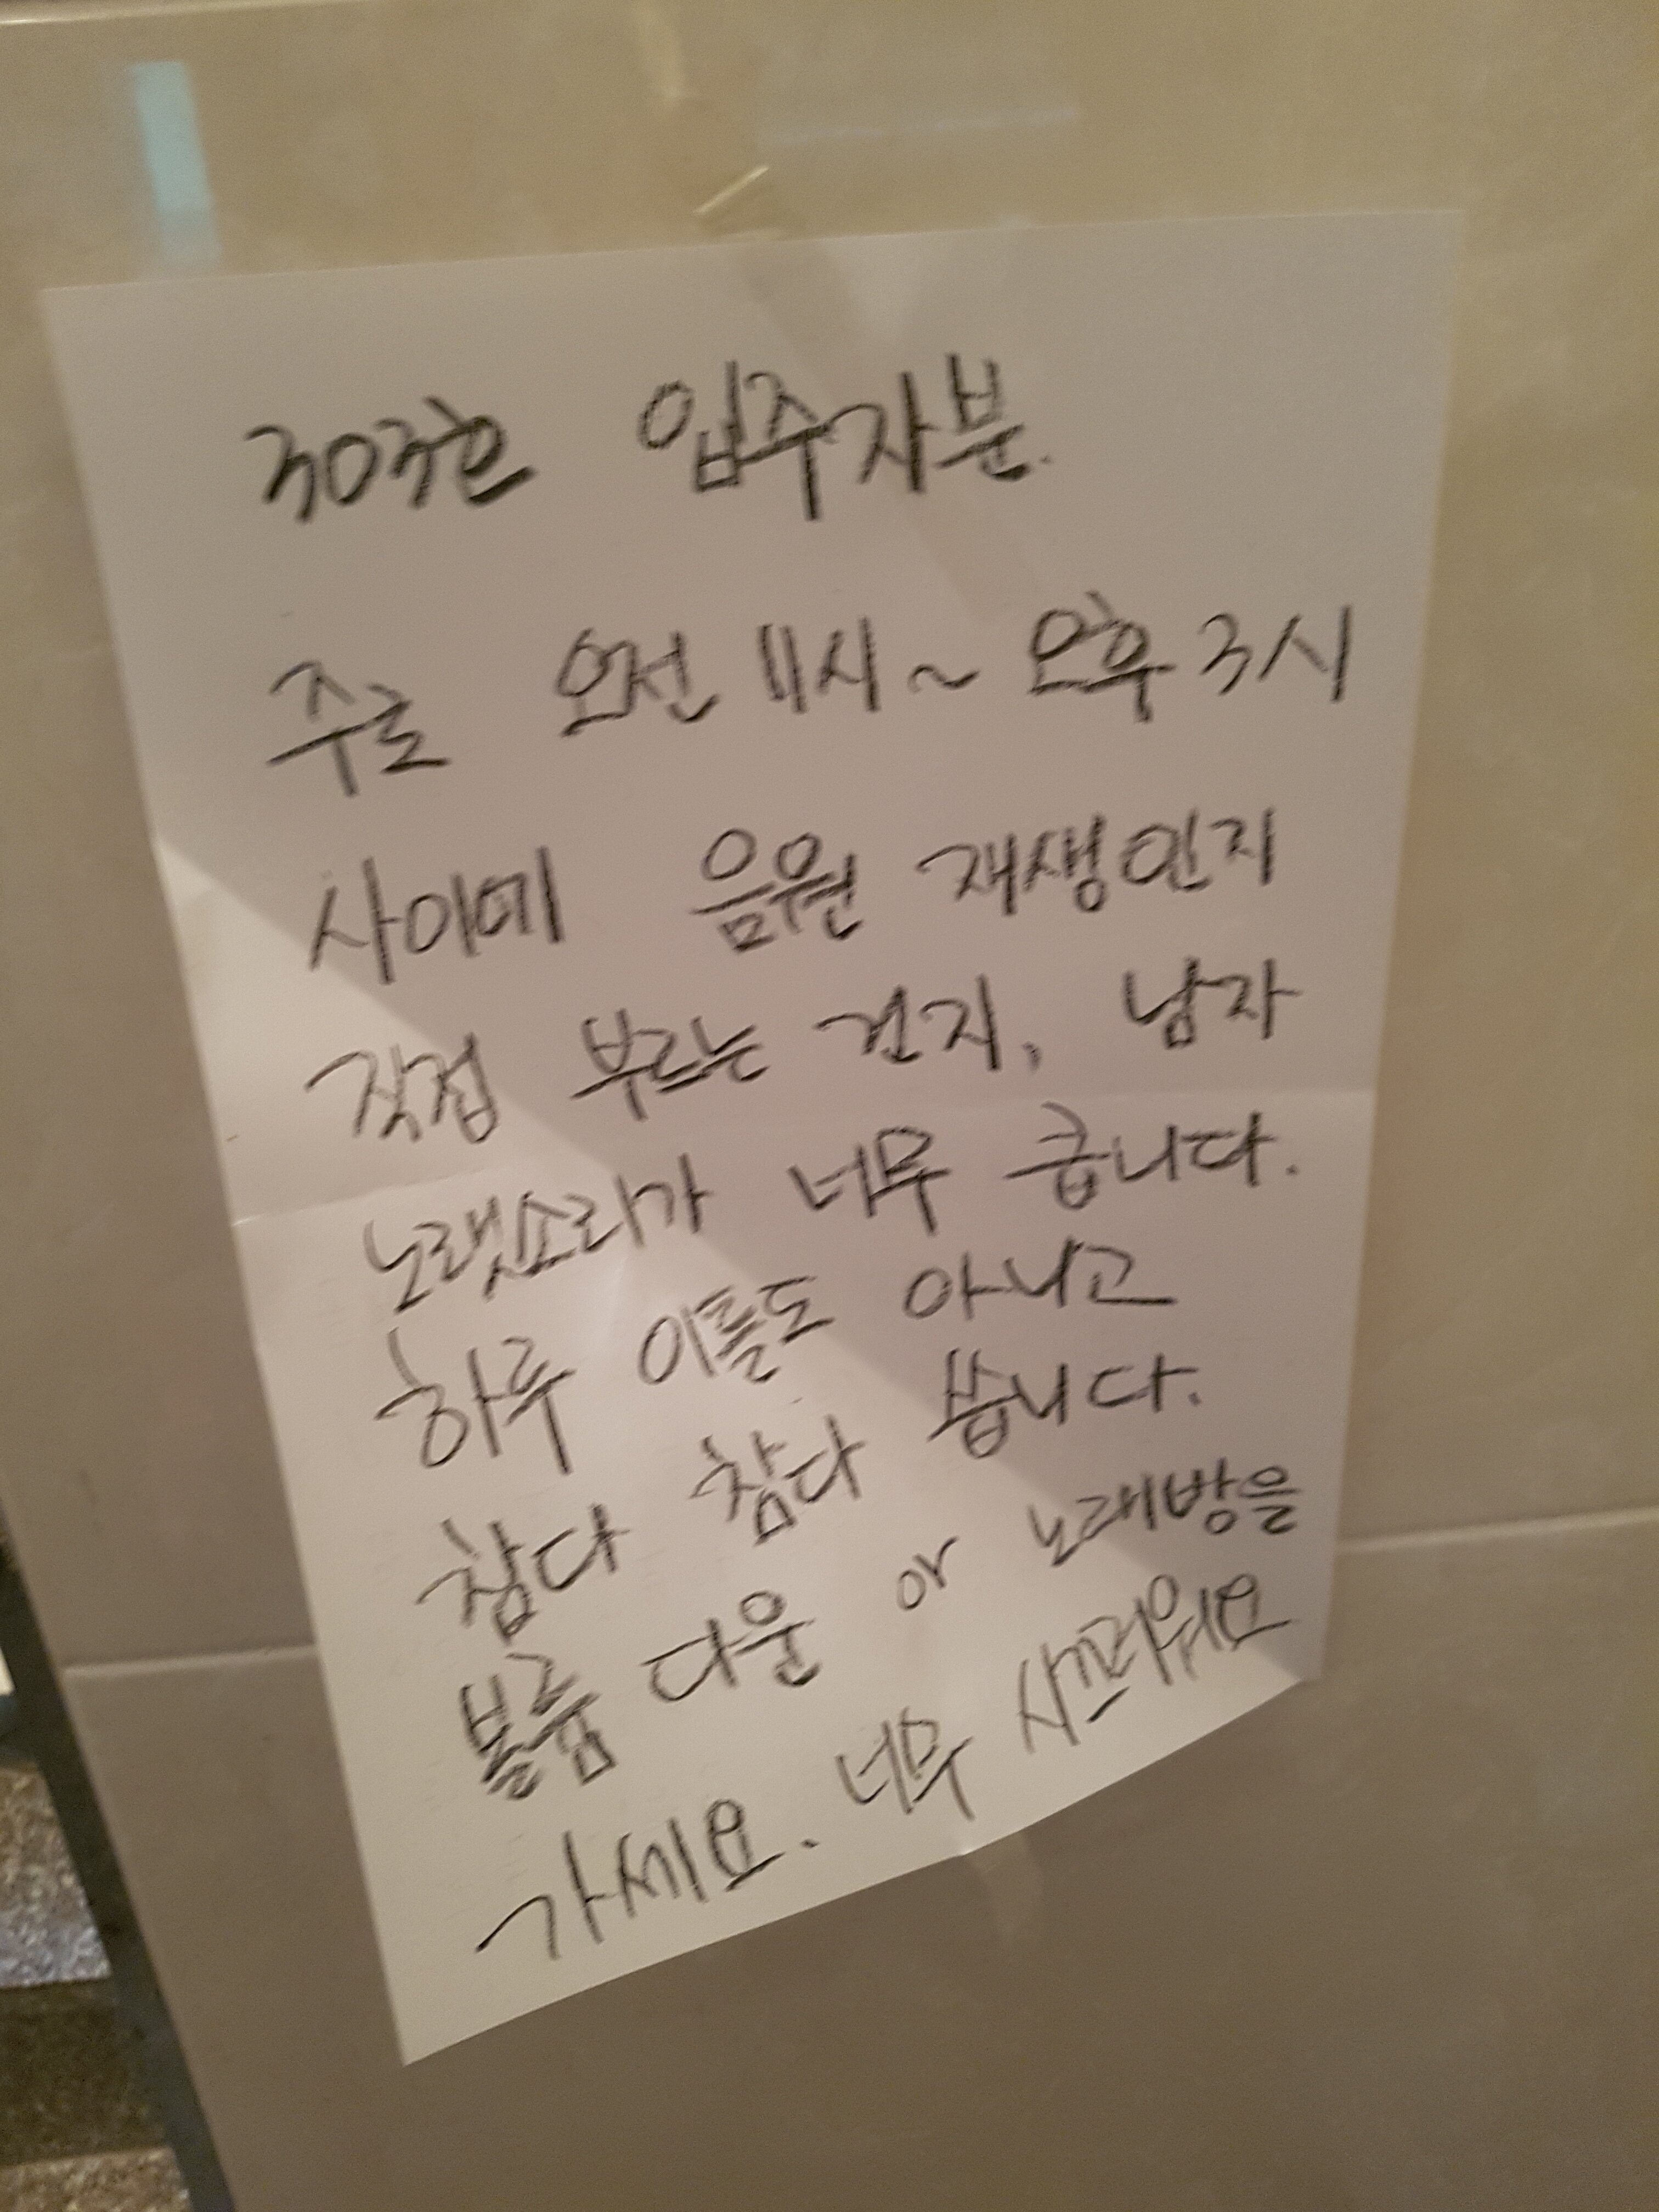 303호 입주자분.
주로 오전 11시 ~ 오후 3시
사이에 음원 재생인지
직접 부르는 건지, 남자
노랫소리가 너무 큽니다.
하루 이틀도 아니고
참다 참다 씁니다.
볼륨 다운 or 노래방을
가세요. 너무 시끄러워요